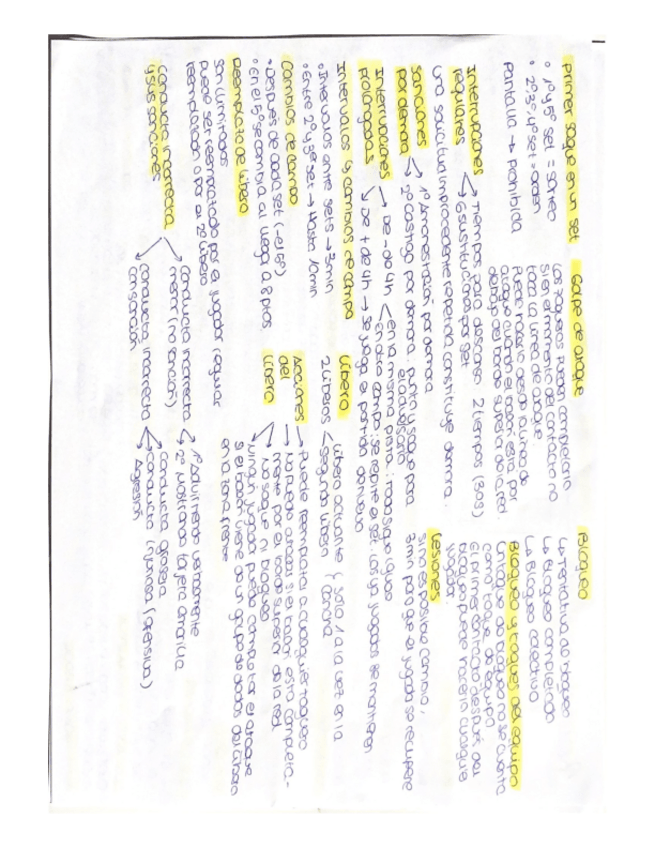 Primer saque en un set
• 1º y 5º set = sorteo
• 2º, 3º, 4º set = orden
Pantalla → prohibida
Golpe de ataque
Los zagueros pueden completarlo
si en el momento del contacto no
toca la línea de ataque.
Puede hacerlo desde la línea de
ataque cuando el balón está por
debajo del borde superior de la red.
Bloqueo
↳ Tentativa de bloqueo
↳ Bloqueo completado
↳ Bloqueo colectivo
Bloqueo y toques del equipo
Un toque de bloqueo no se cuenta
como toque de equipo
El primer contacto después del
bloqueo puede hacerlo cualquier
jugador.
Interrupciones regulares
Tiempos para descanso 2 tiempos (30s)
6 sustituciones por set
una solicitud improcedente repetida constituye demora.
Sanciones por demora
1º Amonestación por demora.
2º castigo por demora, punto y saque para
el adversario
Interrupciones prolongadas
De - de 4h
en la misma pista: todo sigue igual
en otro campo: se repite el set, los ya jugados se mantienen
De + de 4h → se juega el partido de nuevo
Lesiones
Si no es posible cambio,
3min para que el jugador se recupere
Intervalos y cambios de campo
• Intervalos entre sets → 3min
• Entre 2º y 3º set → Hasta 10min
Cambios de campo
• Después de cada set (-el 5º)
• En el 5º se cambia al llegar a 8 ptos.
Reemplazo de líbero
Son ilimitados
puede ser reemplazado por el jugador regular
reemplazado o por el 2º líbero
Líbero
2 líberos
líbero actuante
segundo líbero
solo 1 a la vez en la
cancha
Acciones del líbero
Puede reemplazar a cualquier zaguero
No puede atacar si el balón está completa-
mente por el borde superior de la red
No saque ni bloqueo
Ningún jugador puede completar el ataque
si el balón viene de un golpe de dedos del líbero
en la zona frente
Conducta incorrecta
y sus sanciones
conducta incorrecta
menor (no sanción)
1º Advirtiendo verbalmente
2º Mostrando tarjeta amarilla
conducta incorrecta
con sanción
Conducta grosera
Conducta injuriosa (ofensiva)
Agresión